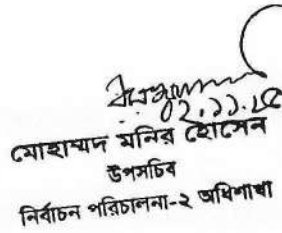 ০২.১১.২৫
মোহাম্মদ মনির হোসেন
উপসচিব
নির্বাচন পরিচালনা-২ অধিশাখা